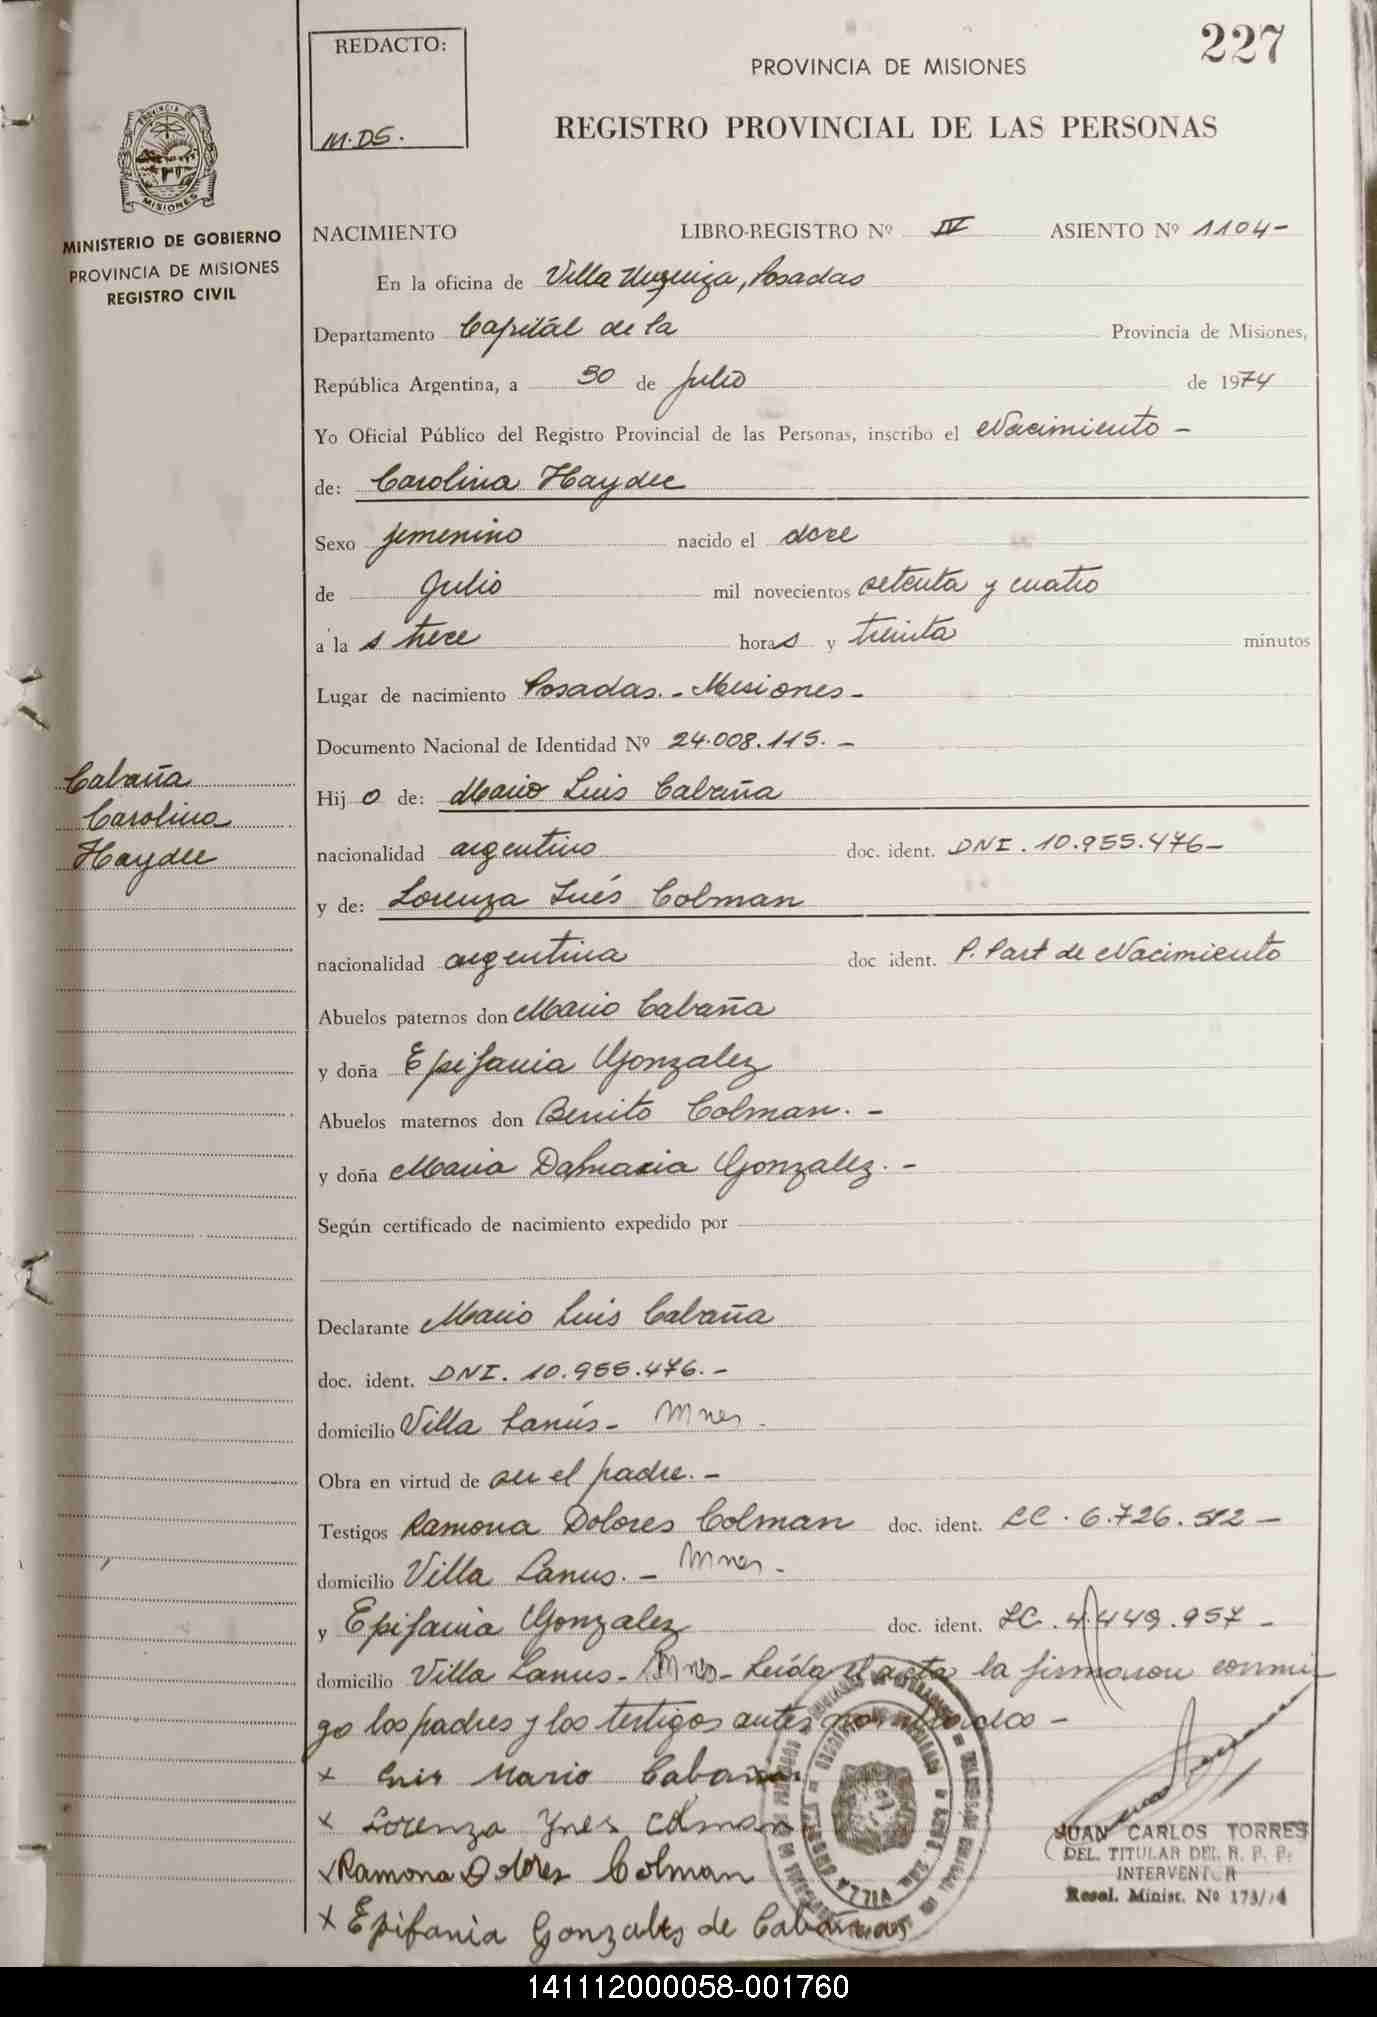 227
REDACTO:
M.DS.
PROVINCIA DE MISIONES
REGISTRO PROVINCIAL DE LAS PERSONAS
PROVINCIA DE
MISIONES
MINISTERIO DE GOBIERNO
PROVINCIA DE MISIONES
REGISTRO CIVIL
NACIMIENTO LIBRO-REGISTRO Nº IV ASIENTO Nº 1104-
En la oficina de Villa Urquiza, Posadas
Departamento Capitál de la Provincia de Misiones,
República Argentina, a 30 de julio de 1974
Yo Oficial Público del Registro Provincial de las Personas, inscribo el Nacimiento -
de: Carolina Haydee
Sexo femenino nacido el doce
de Julio mil novecientos setenta y cuatro
a la s trece horas y treinta minutos
Lugar de nacimiento Posadas. - Misiones -
Documento Nacional de Identidad Nº 24.008.115. -
Cabaña
Carolina
Haydee
Hij o de: Mario Luis Cabaña
nacionalidad argentino doc. ident. DNI. 10.955.476-
y de: Lorenza Inés Colman
nacionalidad argentina doc ident. P. Part de Nacimiento
Abuelos paternos don Mario Cabaña
y doña Epifania Gonzalez
Abuelos maternos don Benito Colman. -
y doña Maria Dalmacia Gonzalez. -
Según certificado de nacimiento expedido por
Declarante Mario Luis Cabaña
doc. ident. DNI. 10.955.476. -
domicilio Villa Lanús - Mnes -
Obra en virtud de ser el padre. -
Testigos Ramona Dolores Colman doc. ident. LC. 6.726.512 -
domicilio Villa Lanus. - Mnes -
y Epifania Gonzalez doc. ident. LC. 4.449.957 -
domicilio Villa Lanus - Mnes - Leída el acta la firmaron conmi
go los padres y los testigos antes nombrados -
x Luis Mario Cabaña
x Lorenza Ynes Colman
x Ramona Dolores Colman
x Epifania Gonzales de Cabañas
JUAN CARLOS TORRES
DEL. TITULAR DEL R. P. P.
INTERVENTOR
Resol. Minist. Nº 173/74
141112000058-001760